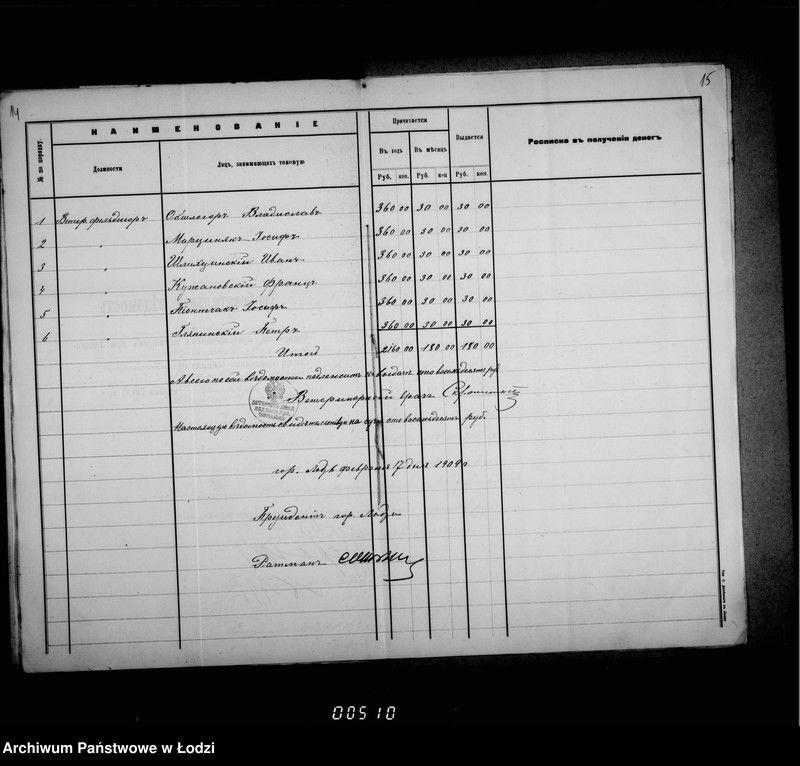 14
15
НАИМЕНОВАНІЕ
Причитается
Выдается
Росписка въ полученіи денегъ
№ по порядку.
Должности
Лицъ, занимающихъ таковую
Въ годъ
Въ мѣсяцъ
Руб. коп. Руб. коп Руб. коп.
1 Ветер. фельдшеръ Владиславъ 360 00 30 00 30 00
2 " Марциньякъ Іосифъ 360 00 30 00 30 00
3 " Иванъ 360 00 30 00 30 00
4 " Кужановскій Францъ 360 00 30 00 30 00
5 " Піонтчакъ Іосифъ 360 00 30 00 30 00
6 " Петръ 360 00 30 00 30 00
Итого 2160 00 180 00 180 00
А всего по сей вѣдомости подлежитъ къ выдачѣ сто восемьдесятъ руб.
Ветеринарный врачъ
Настоящую вѣдомость свидѣтельствую на сумму сто восемьдесятъ руб.
гор. Лодзь февраля 17 дня 1909
Президентъ гор. Лодзи
Ратманъ
00510
Archiwum Państwowe w Łodzi